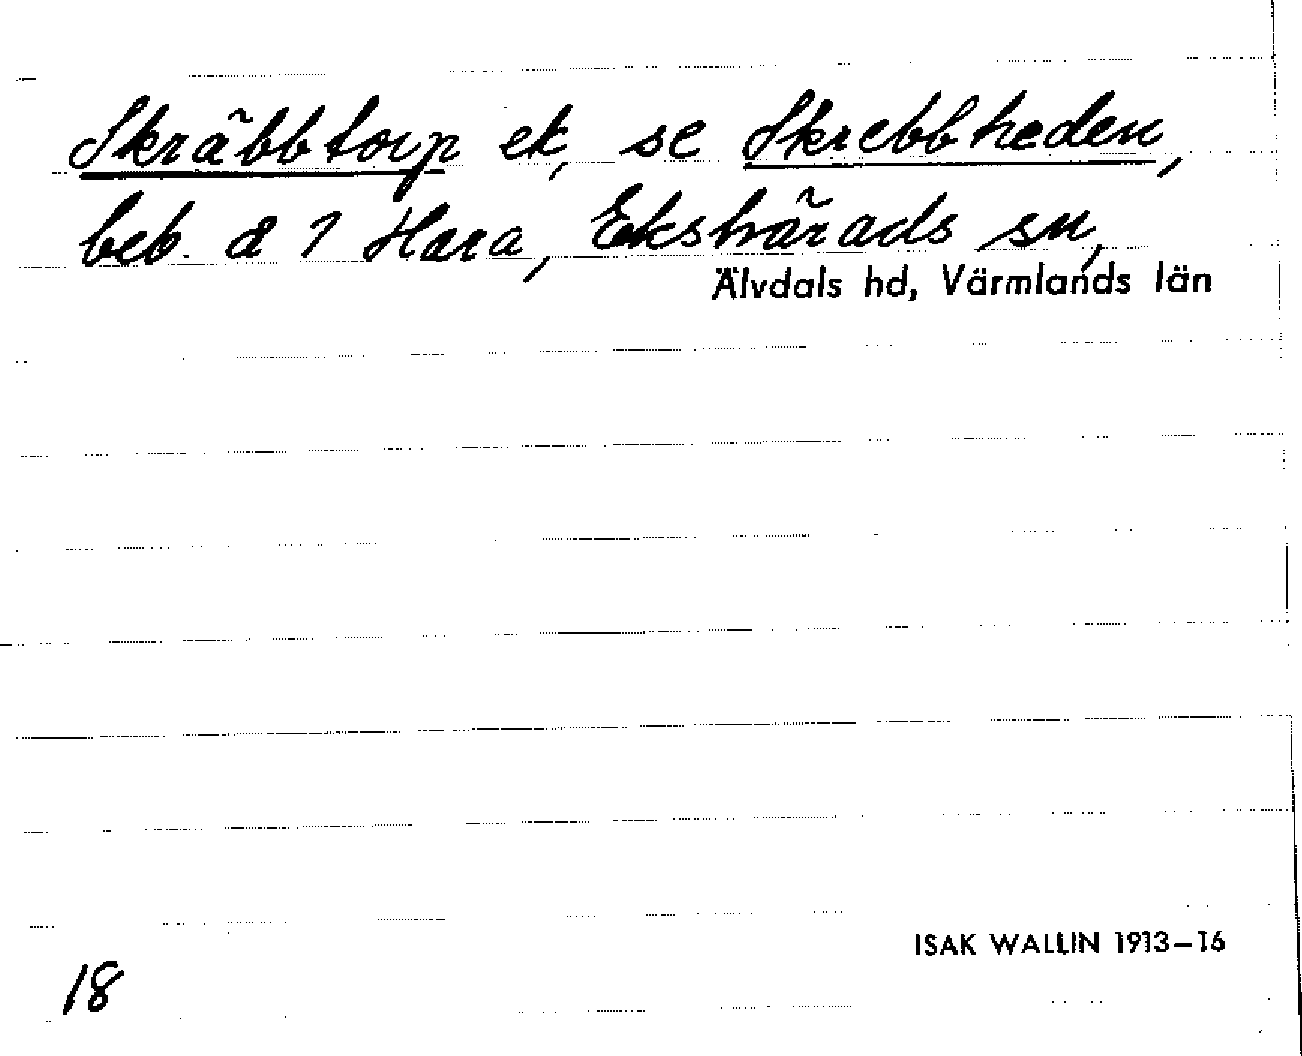 Skräbbtorp ek, se Skrebbheden,
beb. å 1 Hara, Ekshärads sn,
Älvdals hd, Värmlands län
ISAK WALLIN 1913–16
18